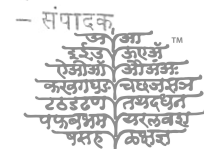 – संपादक
अ आ ™
इ ई उ ऊ ए ऐ
ऐ ओ औ औ अं अः
क ख ग घ ङ च छ ज झ ञ
ट ठ ड ढ ण त थ द ध न
प फ ब भ म य र ल व श
ष स ह ळ क्ष ज्ञ